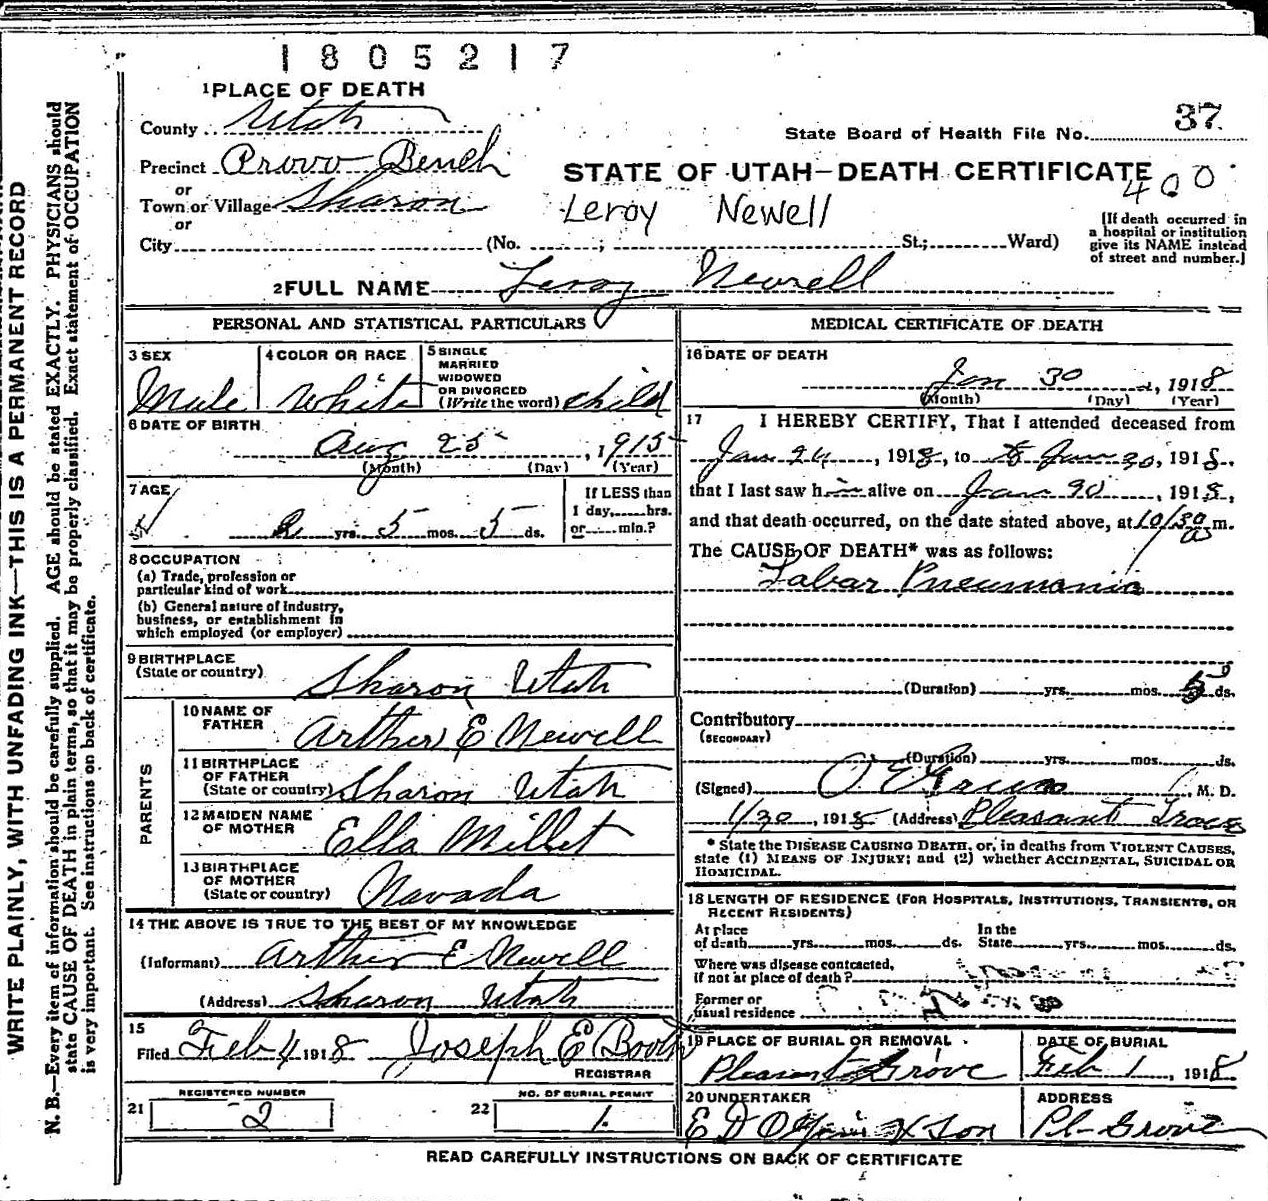 1805217
1 PLACE OF DEATH
County Utah
State Board of Health File No. 37
Precinct Provo Bench
STATE OF UTAH—DEATH CERTIFICATE
400
or
Town or Village Sharon
Leroy Newell
or
City (No. ; St.; Ward)
[If death occurred in
a hospital or institution
give its NAME instead
of street and number.]
2 FULL NAME Leroy Newell
PERSONAL AND STATISTICAL PARTICULARS
3 SEX
Male
4 COLOR OR RACE
White
5 SINGLE
MARRIED
WIDOWED
OR DIVORCED
(Write the word) child
6 DATE OF BIRTH
Aug 25, 1915
(Month) (Day) (Year)
7 AGE
2 yrs. 5 mos. 5 ds.
If LESS than
1 day, hrs.
or min.?
8 OCCUPATION
(a) Trade, profession or
particular kind of work
(b) General nature of industry,
business, or establishment in
which employed (or employer)
9 BIRTHPLACE
(State or country) Sharon Utah
PARENTS
10 NAME OF
FATHER Arther E Newell
11 BIRTHPLACE
OF FATHER
(State or country) Sharon Utah
12 MAIDEN NAME
OF MOTHER Ella Millet
13 BIRTHPLACE
OF MOTHER
(State or country) Navada
14 THE ABOVE IS TRUE TO THE BEST OF MY KNOWLEDGE
(Informant) Arther E Newell
(Address) Sharon Utah
15
Filed Feb 4, 1918 Joseph E Booth
REGISTRAR
REGISTERED NUMBER
21 2
NO. OF BURIAL PERMIT
22 1
MEDICAL CERTIFICATE OF DEATH
16 DATE OF DEATH
Jan 30, 1918
(Month) (Day) (Year)
17 I HEREBY CERTIFY, That I attended deceased from
Jan 24, 1918, to Jan 30, 1918,
that I last saw him alive on Jan 30, 1918,
and that death occurred, on the date stated above, at 10/30 m.
The CAUSE OF DEATH* was as follows:
Labar Pneumonia
(Duration) yrs. mos. 5 ds.
Contributory
(SECONDARY)
(Duration) yrs. mos. ds.
(Signed) M. D.
1/30, 1918 (Address) Pleasant Grove
* State the DISEASE CAUSING DEATH, or, in deaths from VIOLENT CAUSES,
state (1) MEANS OF INJURY; and (2) whether ACCIDENTAL, SUICIDAL OR
HOMICIDAL.
18 LENGTH OF RESIDENCE (FOR HOSPITALS, INSTITUTIONS, TRANSIENTS, OR
RECENT RESIDENTS)
At place
of death yrs. mos. ds.
In the
State yrs. mos. ds.
Where was disease contracted,
if not at place of death?
Former or
usual residence
19 PLACE OF BURIAL OR REMOVAL
Pleasant Grove
DATE OF BURIAL
Feb 1, 1918
20 UNDERTAKER
& Son
ADDRESS
Pl- Grove
READ CAREFULLY INSTRUCTIONS ON BACK OF CERTIFICATE
WRITE PLAINLY, WITH UNFADING INK—THIS IS A PERMANENT RECORD
N. B.—Every item of information should be carefully supplied. AGE should be stated EXACTLY. PHYSICIANS should
state CAUSE OF DEATH in plain terms, so that it may be properly classified. Exact statement of OCCUPATION
is very important. See instructions on back of certificate.